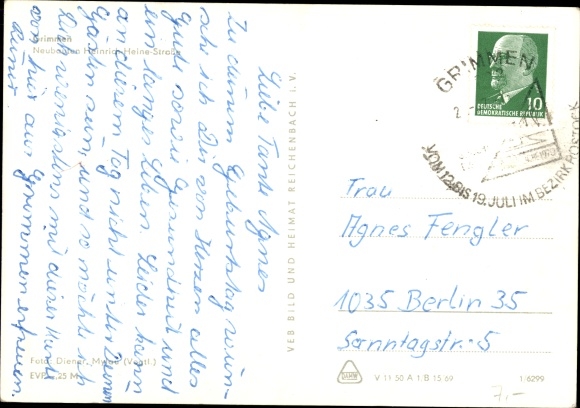 Grimmen
Neubauten Heinrich-Heine-Straße
Liebe Tante Agnes
Zu deinem Geburtstag wün-
sche ich Dir von Herzen alles
gute sowie Gesundheit und
ein langes Leben. Leider kann
an diesem Tag nicht unter Deinen
Gästen sein, und so möchte ich
Dich wenigstens mit dieser Karte
von hier aus Grimmen erfreuen.
Foto: Diener,
EVP
VEB BILD UND HEIMAT REICHENBACH I. V.
GRIMMEN
VOM 12. BIS 19. JULI IM BEZIRK ROSTOCK
DEUTSCHE
DEMOKRATISCHE REPUBLIK
10
Frau
Agnes Fengler
1035 Berlin 35
Sonntagstr. 5
V 11 50 A 1/B 15/69
1/6299
7,-